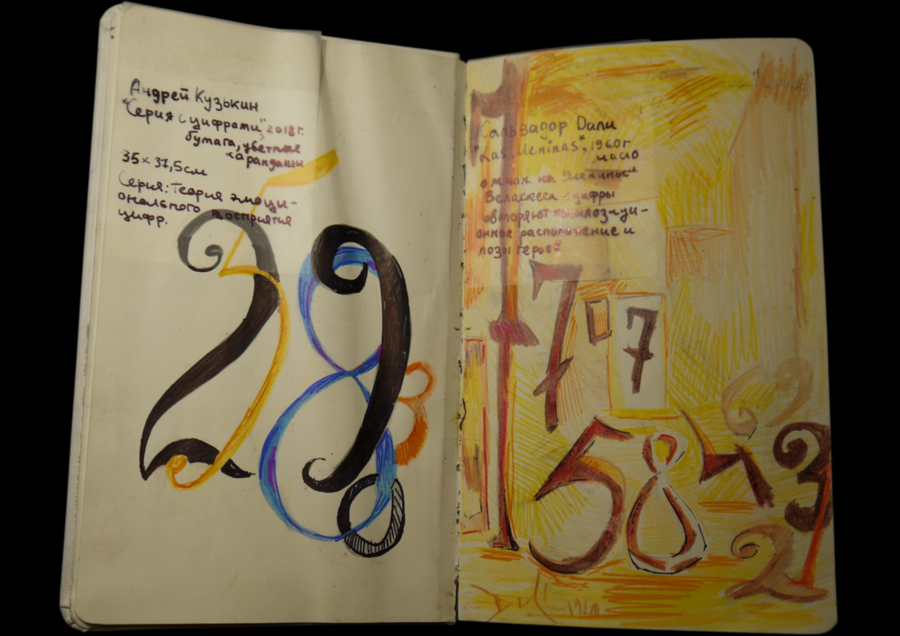 Андрей Кузькин
"Серия с цифрами" 2018г.
бумага, цветные
карандаши
35×37,5см
Серия: Теория эмоци-
онального восприятия
цифр.
2 5 8 9 3 0
Сальвадор Дали
"Las Meninas", 1960г
масло
на "Менины"
Веласкеса цифры
повторяют композици-
онные расположение и
позы героев
7 7
5 8 4 2 3
2 1
1960